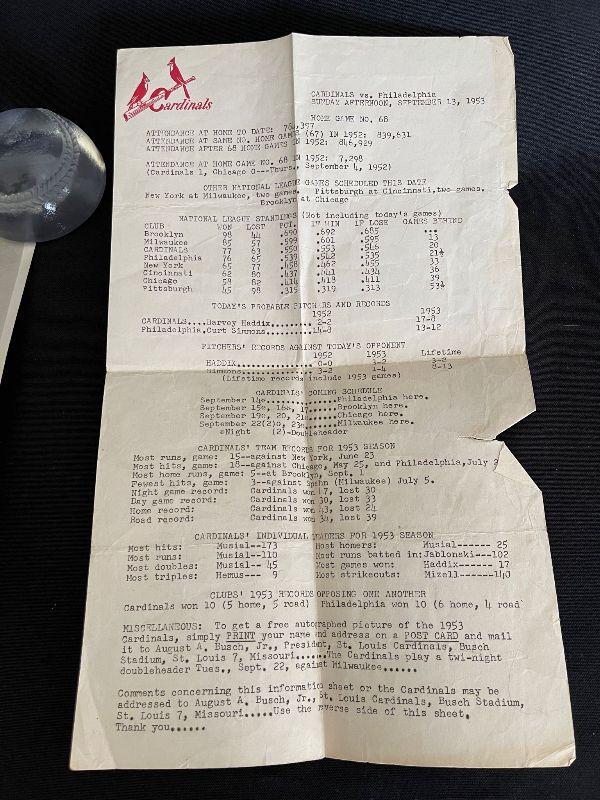 Cardinals
CARDINALS vs. Philadelphia
SUNDAY AFTERNOON, SEPTEMBER 13, 1953
HOME GAME NO. 68
ATTENDANCE AT HOME TO DATE:
ATTENDANCE AT SAME NO. HOME GAMES (67) IN 1952: 839,631
ATTENDANCE AFTER 68 HOME GAMES IN 1952: 846,929
ATTENDANCE AT HOME GAME NO. 68 IN 1952: 7,298
(Cardinals 1, Chicago 0---Thurs., September 4, 1952)
OTHER NATIONAL LEAGUE GAMES SCHEDULED THIS DATE
New York at Milwaukee, two games. Pittsburgh at Cincinnati, two games.
Brooklyn at Chicago
NATIONAL LEAGUE STANDINGS (Not including today's games)
CLUB WON LOST PCT. IF WIN IF LOSE GAMES BEHIND
Brooklyn 98 44 .690 .692 .685 ...
Milwaukee 85 57 .599 .601 .595 13
CARDINALS 77 63 .550 .553 .546 20
Philadelphia 76 65 .539 .542 .535 21½
New York 65 77 .458 .462 .455 33
Cincinnati 62 80 .437 .441 .434 36
Chicago 58 82 .414 .418 .411 39
Pittsburgh 45 98 .315 .319 .313 53½
TODAY'S PROBABLE PITCHERS AND RECORDS
1952 1953
CARDINALS....Harvey Haddix......... 2-2 17-8
Philadelphia.Curt Simmons..........14-8 13-12
PITCHERS' RECORDS AGAINST TODAY'S OPPONENT
1952 1953 Lifetime
HADDIX..................... 0-0 3-2 3-2
Simmons.................... 3-2 1-4 8-13
(Lifetime records include 1953 games)
CARDINALS' COMING SCHEDULE
September 14@...............Philadelphia here.
September 15@, 16@, 17......Brooklyn here.
September 19@, 20, 21@......Chicago here.
September 22(2)@, 23@.......Milwaukee here.
@Night (2)-Doubleheader
CARDINALS' TEAM RECORDS FOR 1953 SEASON
Most runs, game: 15--against New York, June 23
Most hits, game: 18--against Chicago, May 25, and Philadelphia, July
Most home runs, game: 5--at Brooklyn, Sept. 1
Fewest hits, game: 3--against Spahn (Milwaukee) July 5.
Night game record: Cardinals won 47, lost 30
Day game record: Cardinals won 30, lost 33
Home record: Cardinals won 43, lost 24
Road record: Cardinals won 34, lost 39
CARDINALS' INDIVIDUAL LEADERS FOR 1953 SEASON
Most hits: Musial--173 Most homers: Musial------ 25
Most runs: Musial--110 Most runs batted in:Jablonski---102
Most doubles: Musial-- 45 Most games won: Haddix------ 17
Most triples: Hemus--- 9 Most strikeouts: Mizell------140
CLUBS' 1953 RECORDS OPPOSING ONE ANOTHER
Cardinals won 10 (5 home, 5 road) Philadelphia won 10 (6 home, 4 road
MISCELLANEOUS: To get a free autographed picture of the 1953
Cardinals, simply PRINT your name and address on a POST CARD and mail
it to August A. Busch, Jr., President, St. Louis Cardinals, Busch
Stadium, St. Louis 7, Missouri......The Cardinals play a twi-night
doubleheader Tues., Sept. 22, against Milwaukee......
Comments concerning this information sheet or the Cardinals may be
addressed to August A. Busch, Jr., St. Louis Cardinals, Busch Stadium,
St. Louis 7, Missouri.....Use the reverse side of this sheet.
Thank you......